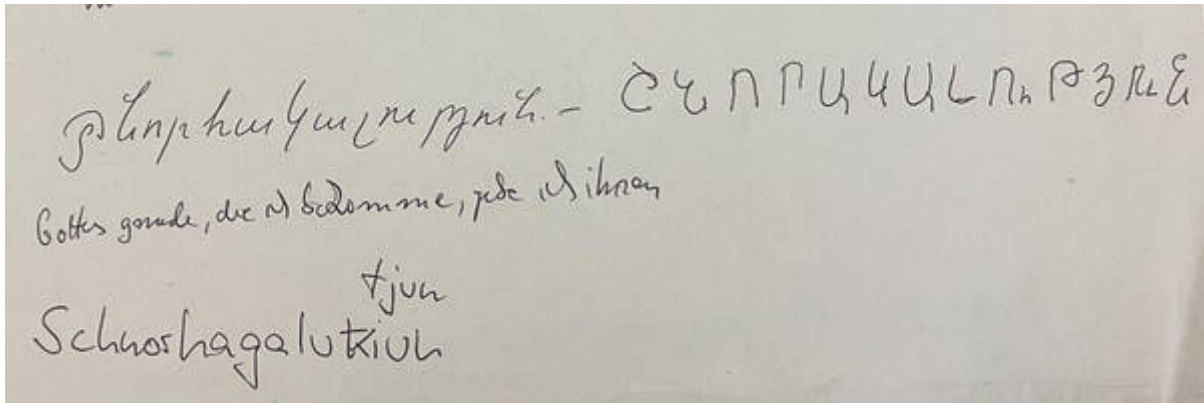 շնորհակալություն. – ՇՆՈՐԱԿԱԼՈւԹՅՈւՆ
Gottes gnade, die ich bekomme, gebe ich ihnen
tjun
Schnorhagalutkiun